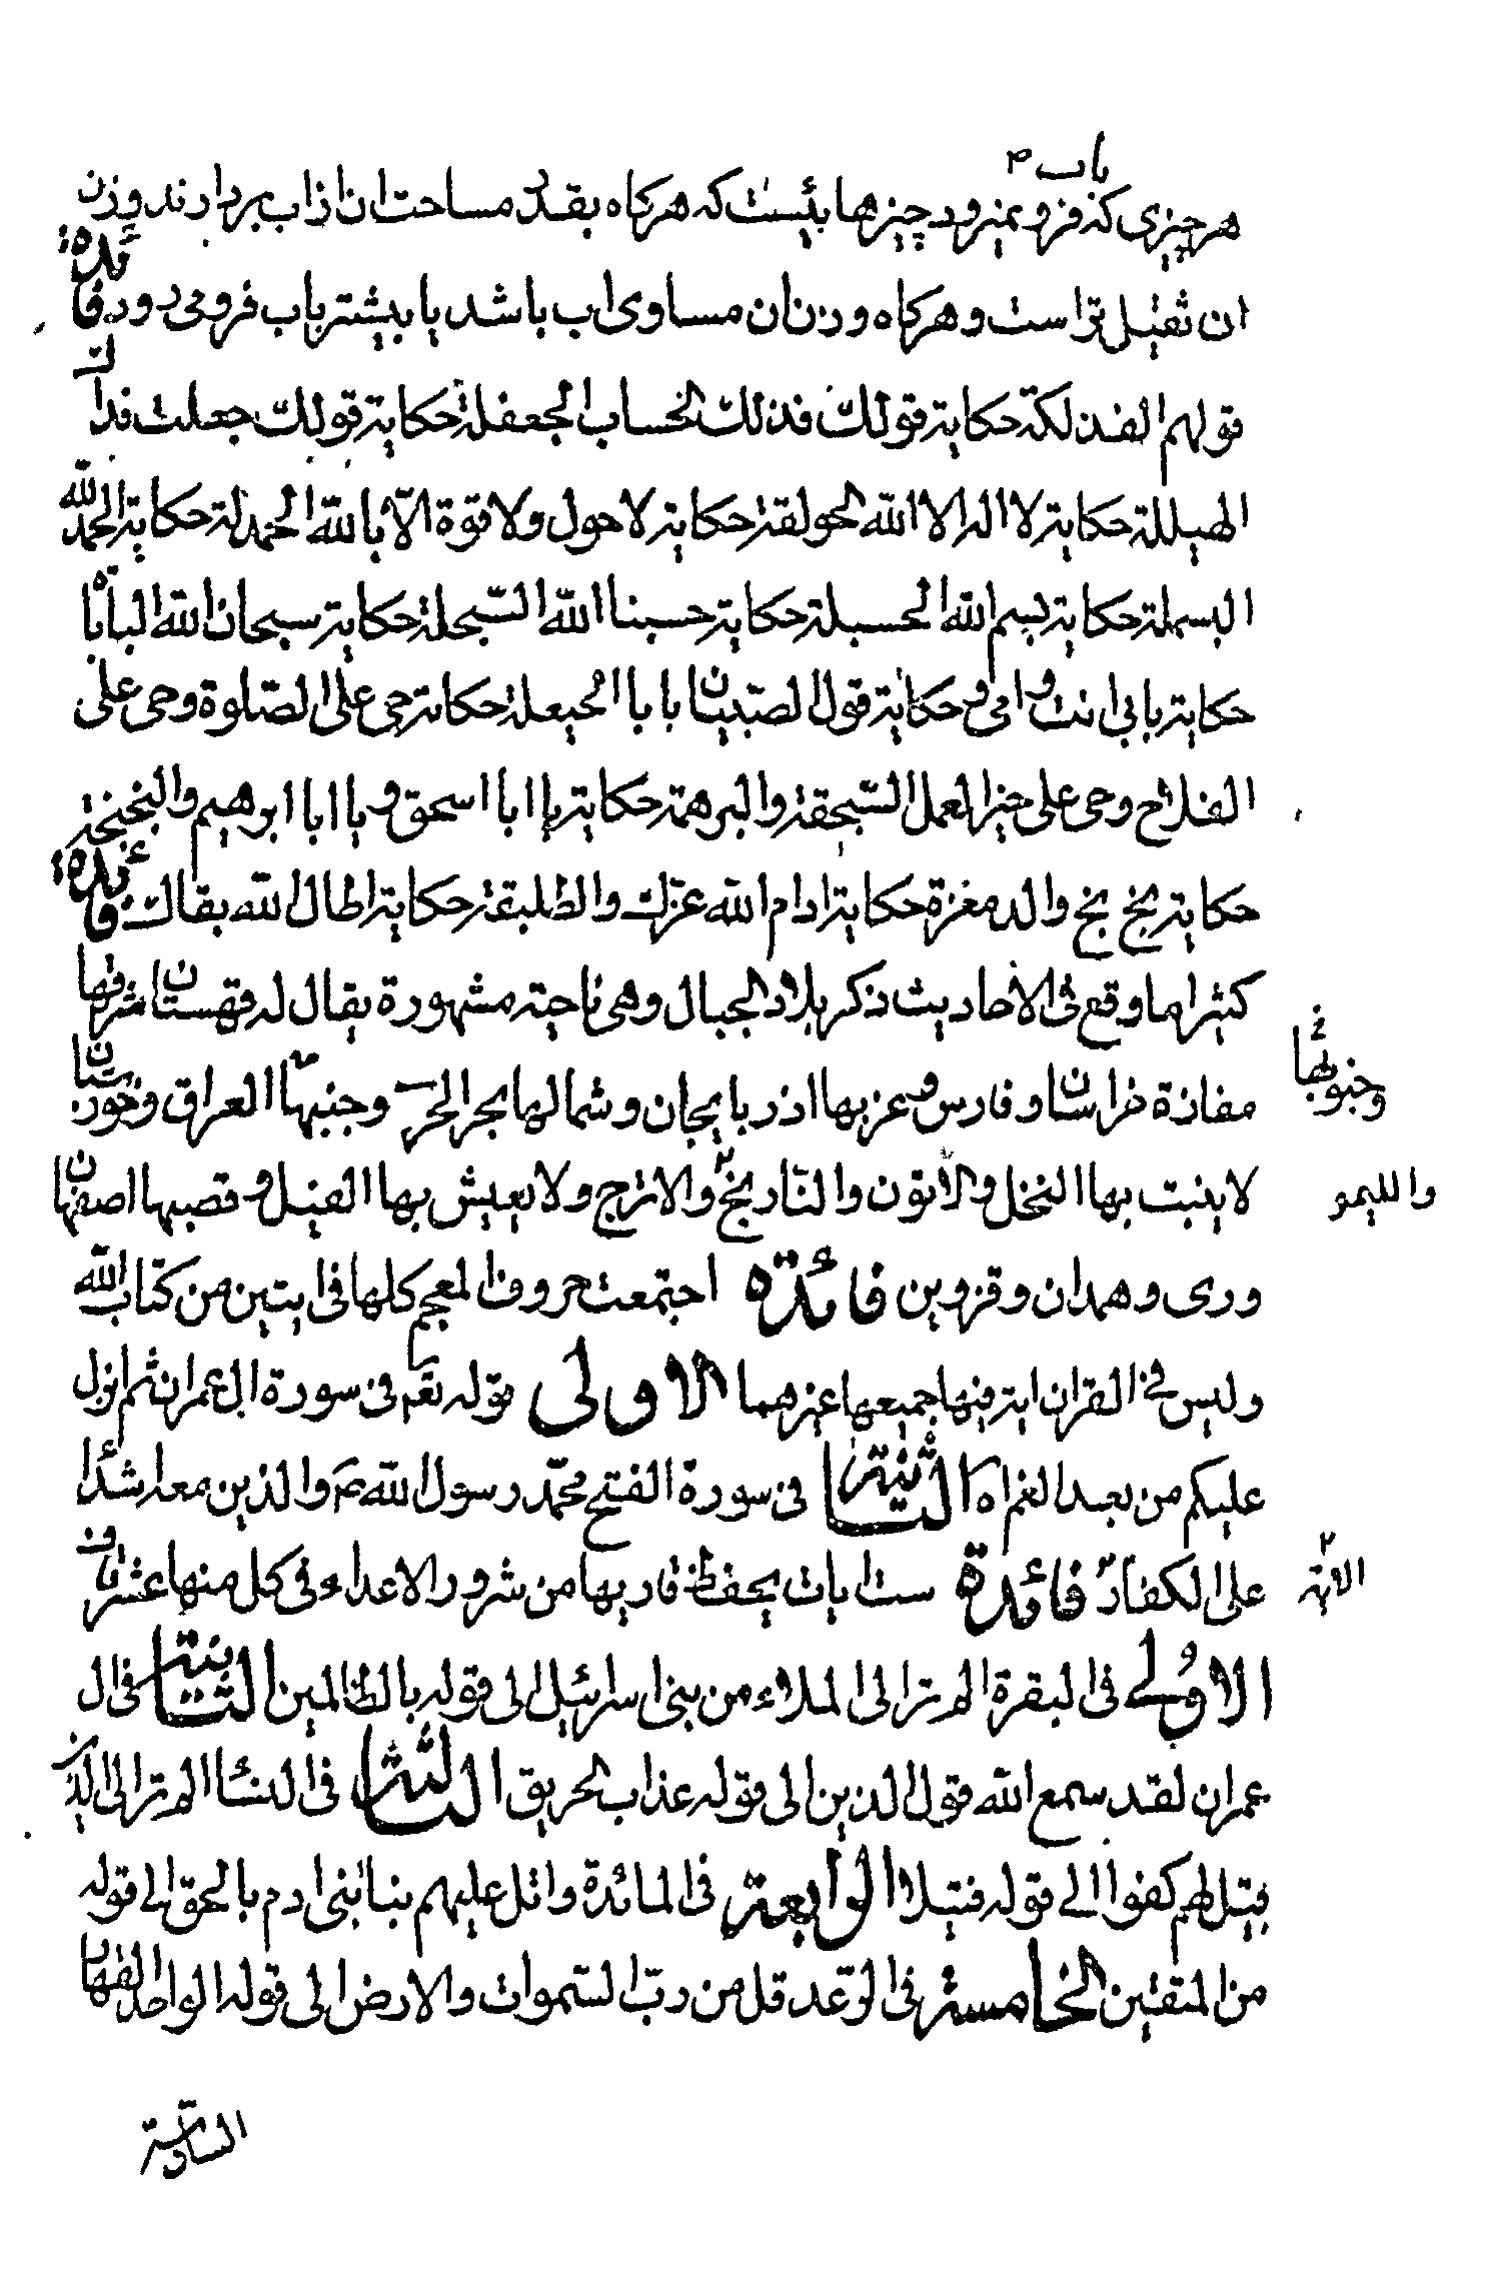 باب ٣
هر چیزی که فرو نمیرود چیزهائیست که هرکاه بقدر مساحت ان از اب بردارند وزن
ان ثقیل تر است و هرکاه وزن ان مساوی اب باشد یا بیشتر باب فرو می رود فائدة
قولهم الفذلكة حكاية قولك فذلك الحساب الجعفلة حكاية قولك جعلت فداك
الهيللة حكاية لا اله الا الله الحولقة حكاية لا حول ولا قوة الا بالله الحمدلة حكاية الحمد لله
البسملة حكاية بسم الله الحسبلة حكاية حسبنا الله السبحلة حكاية سبحان الله البابأة
حكاية بابي انت وامي وحكاية قول الصبيان بابا الحيعلة حكاية حي على الصلوة وحي على
الفلاح وحي على خير العمل السبحقة والبرهمة حكاية يا ابا اسحق ويا ابا ابرهيم والبخبخة
حكاية بخ بخ والدمعزة حكاية ادام الله عزك والطلبقة حكاية اطال الله بقاك فائدة
كثيرا ما وقع في الاحاديث ذكر بلاد الجبال وهي ناحية مشهورة يقال له قهستان شرقها
مفازة خراسان وفارس وغربها اذربايجان وشمالها بحر الخزر وجنبها العراق وخورستان
وجنوبها
لا ينبت بها النخل والاتون والنارنج والاترج ولا يعيش بها الفيل وقصبها اصفهان
والليمو
وری وهمدان وقزوين فائدة اجتمعت حروف المعجم كلها في ايتين من كتاب الله
وليس في القران اية فيها جميعها غيرهما الاولى قوله تعم في سورة ال عمران ثم انزل
عليكم من بعد الغم اه الثانية في سورة الفتح محمد رسول الله ص والذين معه اشداء
على الكفار فائدة ست ايات يحفظ قاريها من شرور الاعداء وفي كل منها عشر قاف
الاية
الاولى في البقرة الم تر الى الملاء من بني اسرئيل الى قوله بالظالمين الثانية في ال
عمران لقد سمع الله قول الذين الى قوله عذاب الحريق الثالثة في النساء الم تر الى الذين
قيل لهم كفوا الى قوله فتيلا الرابعة في المائدة واتل عليهم نبا ابنى ادم بالحق الى قوله
من المتقين الخامسة في الرعد قل من رب السموات والارض الى قوله الواحد القهار
السادسة